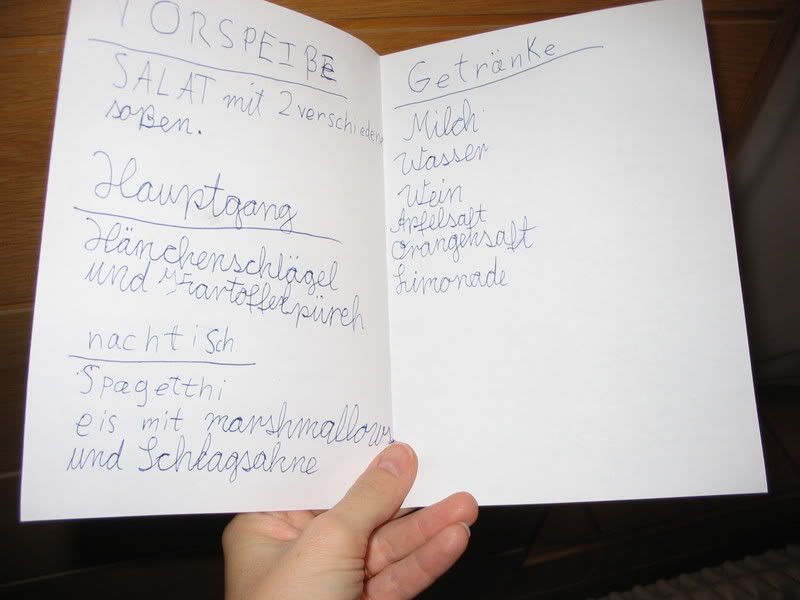 VORSPEIßE
SALAT mit 2 verschiedene
soßen.
Hauptgang
Hänchenschlägel
und Kartoffelpüreh
nachtisch
Spagetthi
eis mit marshmallows
und Schlagsahne
Getränke
Milch
Wasser
Wein
Apfelsaft
Orangensaft
Limonade